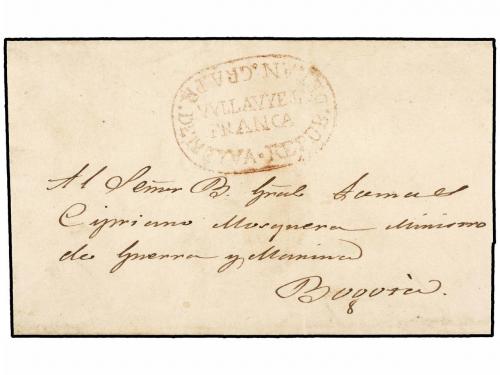 REPUB. DE LAN. GRA. PR. DE NEYVA.
VILLAVYEJA
FRANCA
Al Señor B. Gral Tomas
Cipriano Mosquera Ministro
de Guerra y Marina
Bogotá.